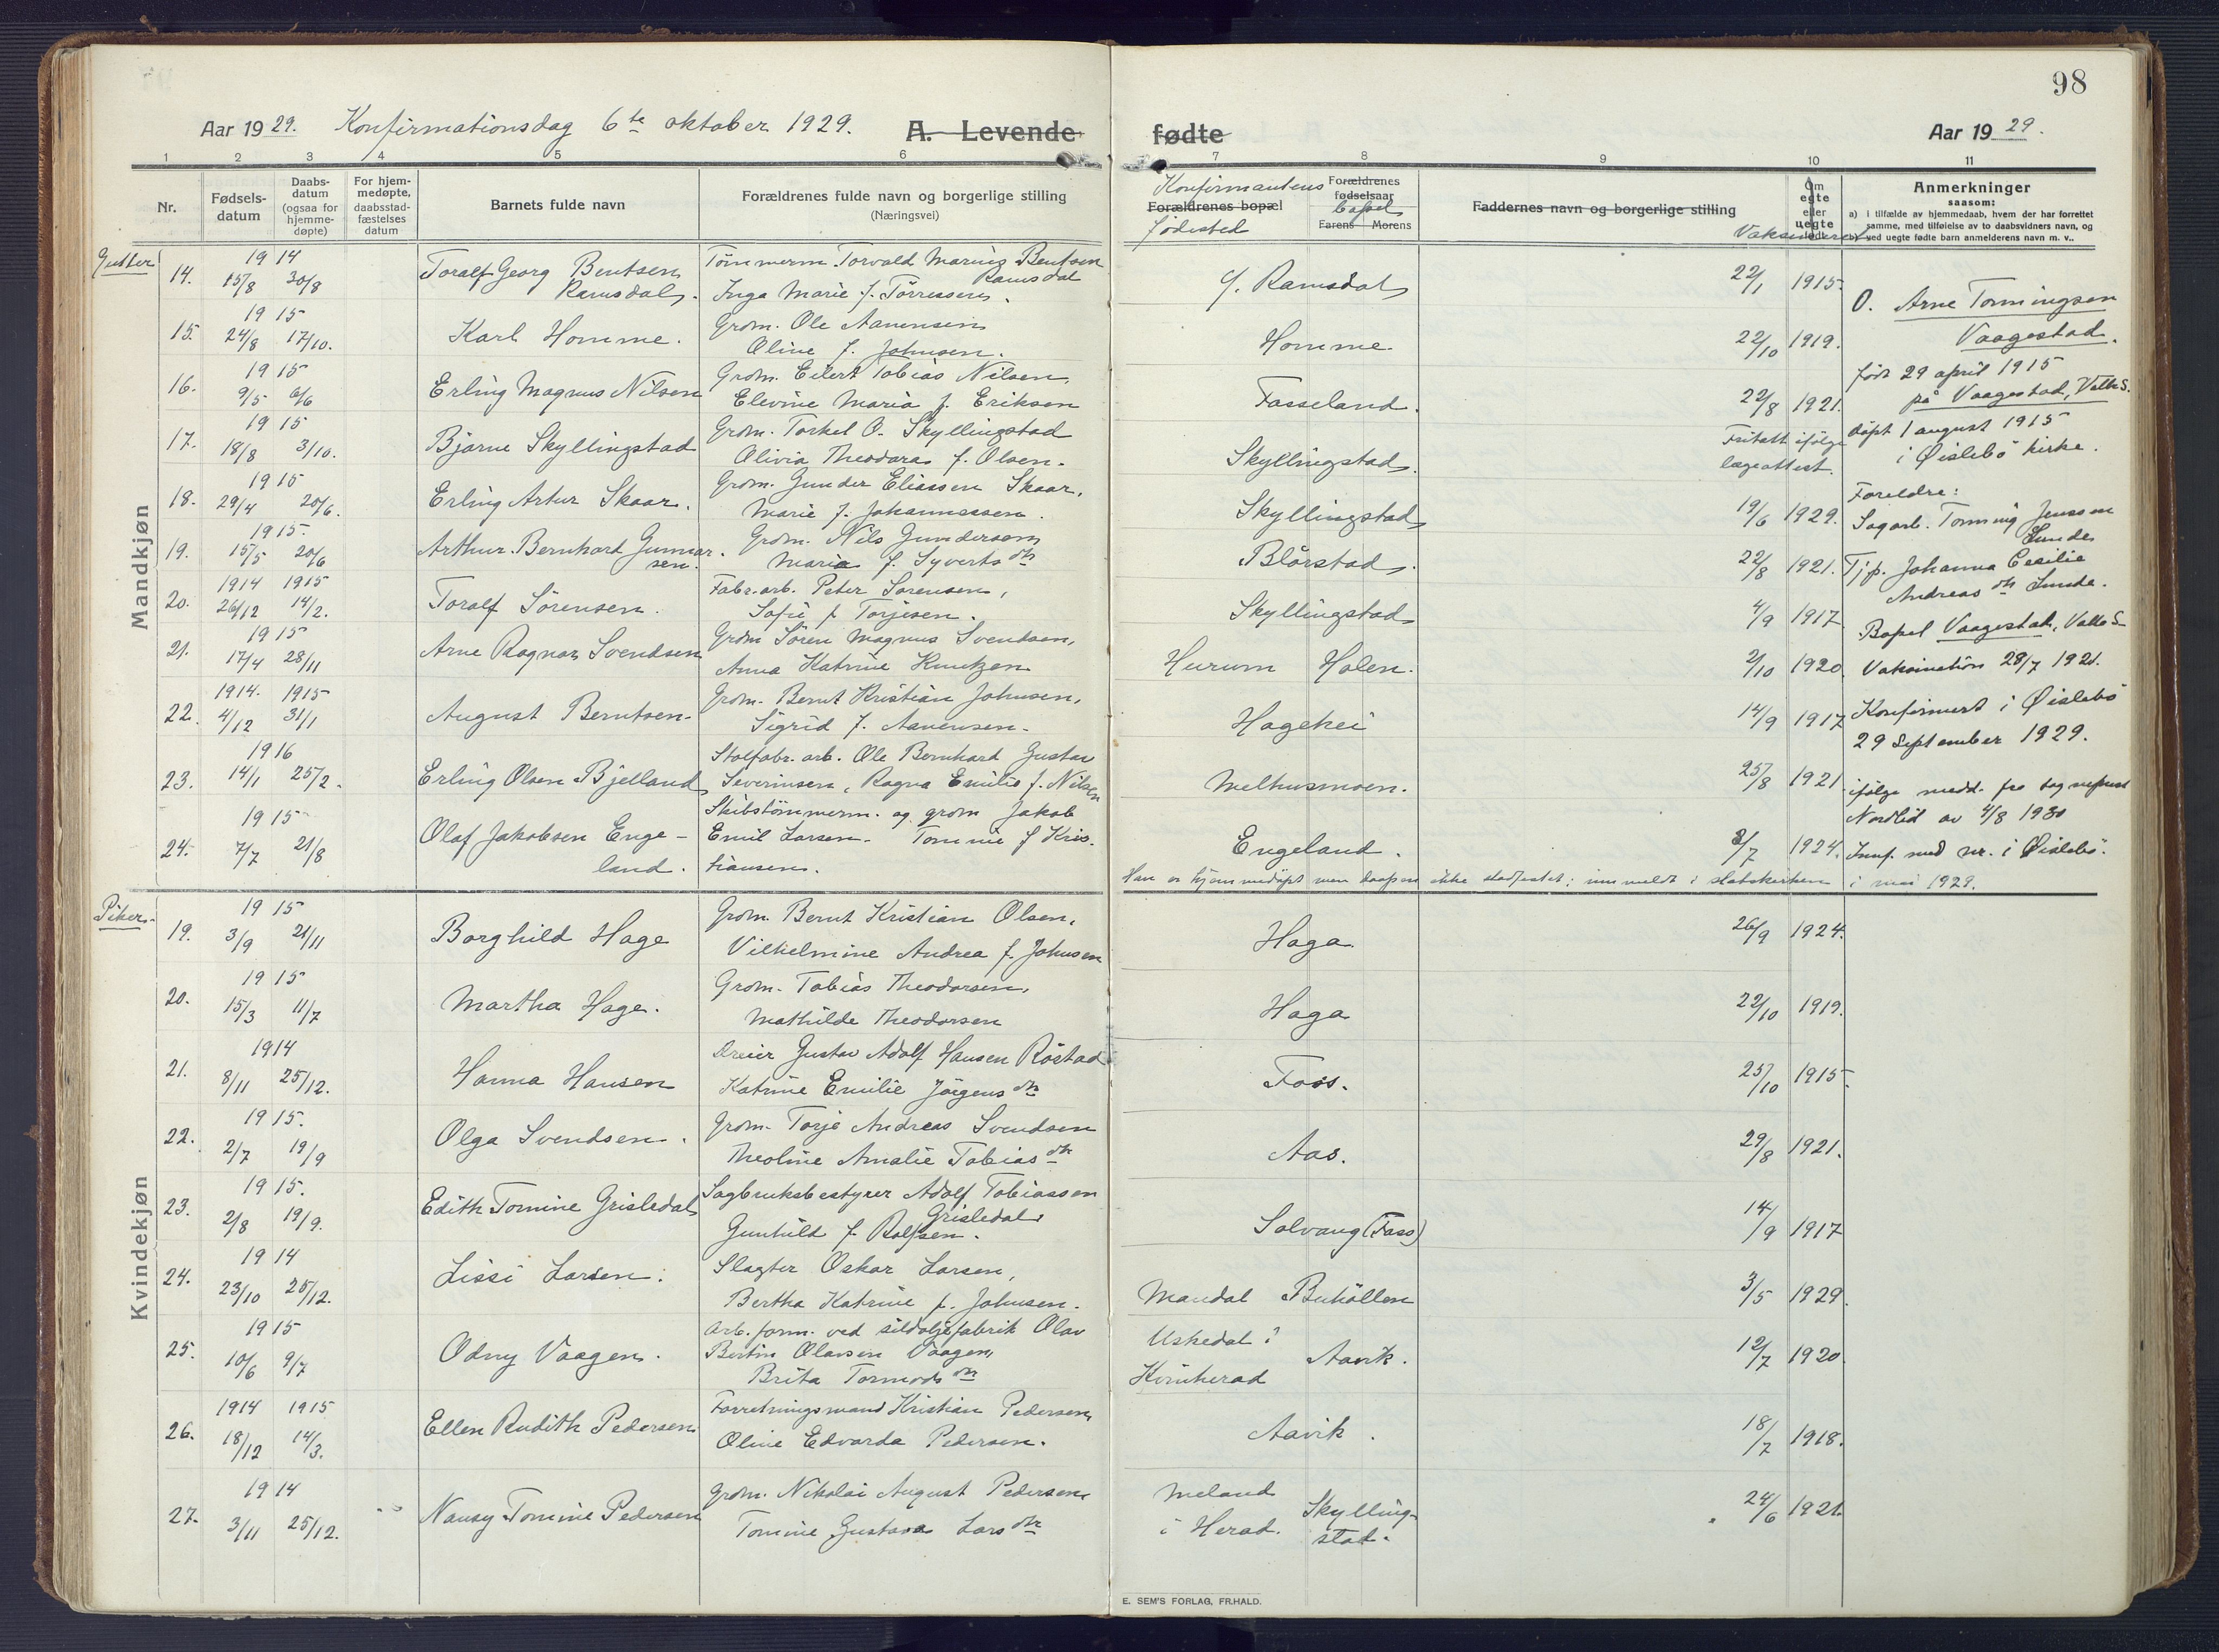 98
Aar 1929. Konfirmationsdag 6te oktober 1929. A. Levende fødte Aar 1929.
1 2 3 4 5 6 7 8 9 10 11
Nr.
Fødsels-
datum
Daabs-
datum
(ogsaa for
hjemme-
døpte)
For hjem-
medøpte,
daabsstad-
fæstelses
datum
Barnets fulde navn
Forældrenes fulde navn og borgerlige stilling
(Næringsvei)
Konfirmantens
Forældrenes bopæl
fødested
Forældrenes
fødselsaar
bopæl
Farens Morens
Faddernes navn og borgerlige stilling
Vaksinert
Om
egte
eller
uegte
født
Anmerkninger
saasom:
a) i tilfælde av hjemmedaab, hvem der har forrettet
samme, med tilføielse av to daabsvidners navn, og
b) ved uegte fødte barn anmelderens navn m. v..
Gutter
Mandkjøn
14. 1914 15/8 30/8 Toralf Georg Bentsen
Ramsdal.
Tømmerm. Torvald Marius Bentsen
Ramsdal
Inga Marie f. Tørressen.
Ramsdal 22/1 1915.
15. 1915 24/8 17/10. Karl Homme.
Grdm. Ole Aanensen
Oline f. Johnsen.
Homme 22/10 1919.
16. 1915 9/5 6/6 Erling Magnus Nilsen
Grdm. Eilert Tobias Nilsen,
Elevine Maria f. Eriksen
Fasseland. 22/8 1921.
17. 1915 18/8 3/10. Bjarne Skyllingstad
Grdm. Torkel O. Skyllingstad
Olivia Theodora f. Olsen.
Skyllingstad. Fritatt ifølge
lægeattest.
18. 1915 29/4 20/6. Erling Artur Skaar.
Grdm. Gunder Eliassen Skaar,
Marie f. Johannessen.
Skyllingstad 19/6 1929.
19. 1915. 15/5 20/6 Arthur Bernhard Gunnar-
sen.
Grdm. Nils Gundersen
Maria f. Syvertsdtr
Blørstad. 22/8 1921.
20. 1914 1915 26/12 14/2. Toralf Sörensen.
Fabr.arb. Peter Sørensen,
Sofie f Torjesen.
Skyllingstad 4/9 1917
21. 1915 17/4 28/11 Arne Ragnar Svendsen
Grdm Sören Magnus Svendsen,
Anna Katrine Knutzen
Hurum Holen. 2/10 1920.
22. 1914. 1915 4/12 31/1 August Berntsen
Grdm. Bernt Kristian Johnsen,
Sigrid f. Aanensen.
Hagehei 14/9 1917
23. 1916 14/1 25/2. Erling Olsen Bjelland
Stolfabr. arb. Ole Bernhard Gustav
Severinsen, Ragna Emilie f. Nilsen
Melhusmoen. 25/8 1921
24. 1915 7/7 21/8 Olaf Jakobsen Enge-
land.
Skibstömmerm. og grdm Jakob
Emil Larsen. Tomine f Kris-
tiansen.
Engeland. 8/7 1924.
Han er hjemmedøpt men daapen ikke stadfestet; innmeldt i statskirken i mai 1929.
O. Arne Tormingsen
Vaagestad.
født 29 april 1915
på Vaagestad, Valle S.
döpt 1 august 1915
i Øislebö kirke.
Foreldre:
Sagarb. Torming Jenssen
Lunde
Tjp. Johanna Cecilie
Andreasdtr Lunde.
Bopel Vaagestad, Valle S
Vaksination 28/7 1921.
Konfirmert i Øislebö
29 september 1929.
ifölge medd. fra sogneprest
Nordlid av 4/8 1930
Innf. med nr. i Øislebö.
Piker
Kvindekjøn
19. 1915 3/9 21/11 Borghild Hage
Grdm. Bernt Kristian Olsen,
Vilhelmine Andrea f. Johnsen
Haga 26/9 1924.
20. 1915 15/3 11/7 Martha Hage.
Grdm. Tobias Theodorsen,
Mathilde Theodorsen
Haga 22/10 1919.
21. 1914 8/11 25/12. Hanna Hansen
Dreier Gustav Adolf Hansen Röstad
Katrine Emilie Jörgensdtr
Foss. 25/10 1915.
22. 1915. 2/7 19/9 Olga Svendsen.
Grdm. Torje Andreas Svendsen
Theoline Amalie Tobiasdtr
Aas. 29/8 1921.
23. 1915. 2/8 19/9. Edith Tomine Grisledal
Sagbruksbestyrer Adolf Tobiassen
Grisledal
Gunhild f. Rolfsen.
Solvang (Foss) 14/9 1917
24. 1914 23/10 25/12. Lissi Larsen.
Slagter Oskar Larsen,
Bertha Katrine f. Johnsen.
Mandal Buhöllen 3/5 1929.
25. 1915 10/6 9/7 Odny Vaagen.
Arb. form. ved sildoljefabrik Olav
Bertin Olavsen Vaagen,
Brita Tormodsdtr
Uskedal i
Kvinherad Aavik. 12/7 1920.
26. 1914 1915 18/12 14/3. Ellen Rudith Pedersen
Forretningsmand Kristian Pedersen,
Oline Edvarda Pedersen.
Aavik. 18/7 1918.
27. 1914 3/11 25/12. Nansy Tomine Pedersen
Grdm. Nikolai August Pedersen
Tomine Gustava Larsdtr
Meland
i Herad. Skylling-
stad. 24/6 1921.
E. SEM'S FORLAG, FR.HALD.